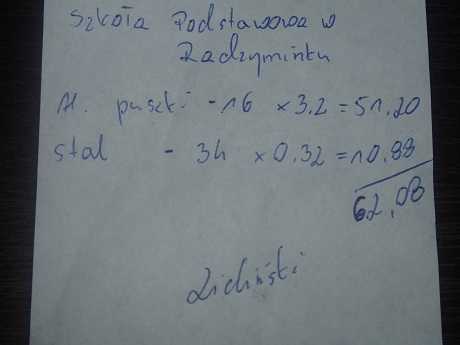 Szkoła Podstawowa w
Radzyminku
Al. puszki - 16 x 3.2 = 51.20
stal - 34 x 0.32 = 10.88
62.08